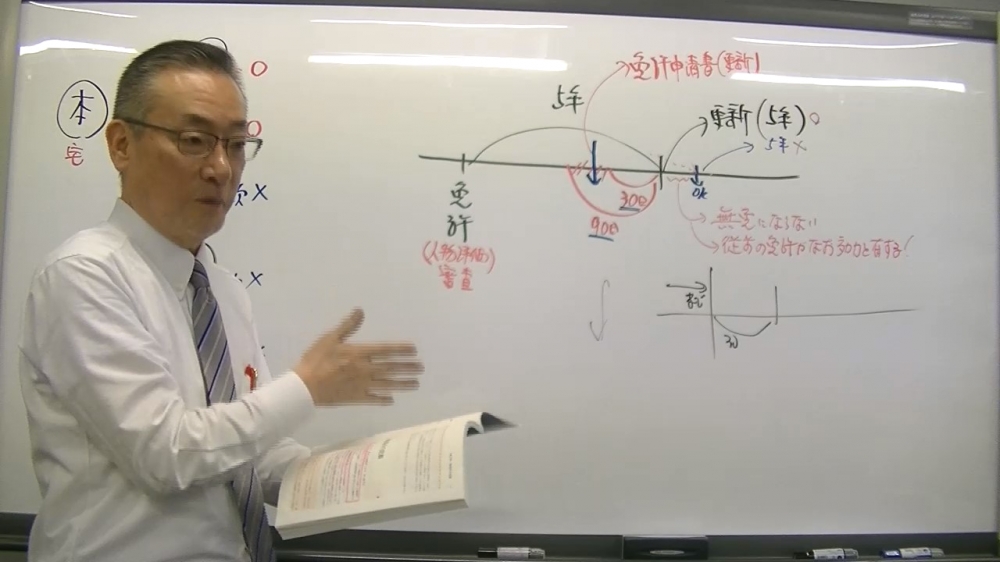 本
宅
○
○
欠×
×
免許申請書(更新)
5年
更新(5年)○
5年×
免許
(人的評価)
審査
30日
90日
OK
無免にならない
従前の免許がなお効力を有する!
30